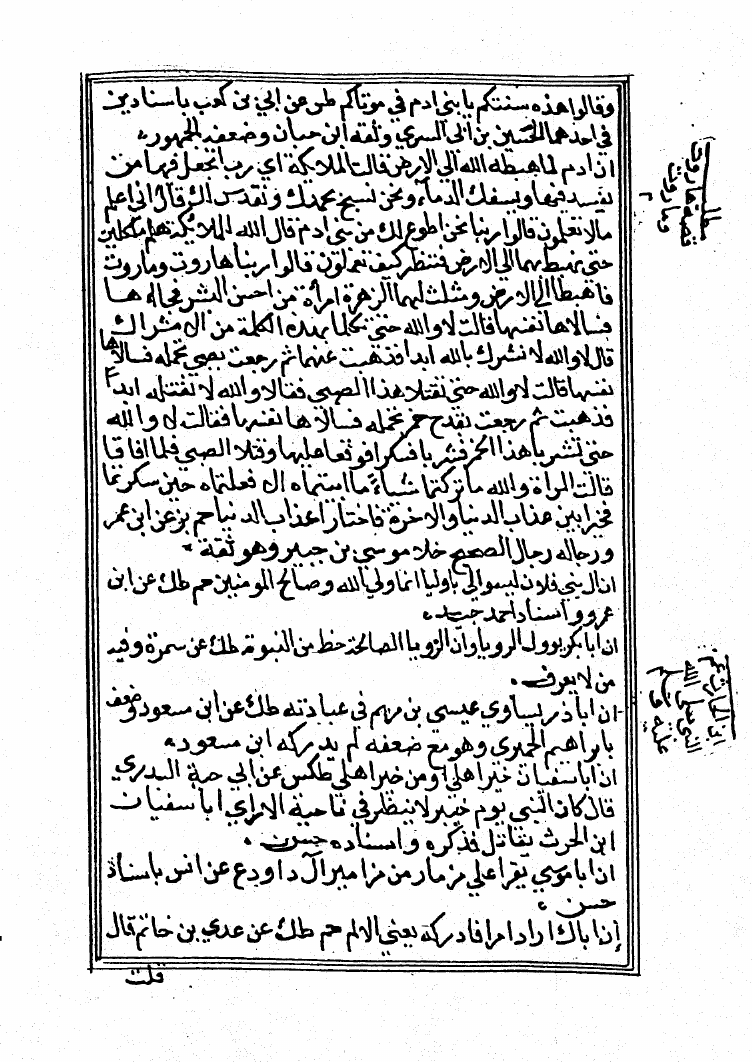 وقالوا هذه سنتكم يا بني ادم في موتاكم طس عن ابي بن كعب باسنادين
في احدهما الحسين بن ابي السري وثقه ابن حبان وضعفه الجمهور
ان ادم لما اهبطه الله الي الارض قالت الملايكة اي رب اتجعل فيها من
يفسد فيها ويسفك الدماء ونحن نسبح بحمدك ونقدس لك قال اني اعلم
مالا تعلمون قالوا ربنا نحن اطوع لك من بني ادم قال الله للملايكة هلموا ملكين
حتى نهبط بهما الي الارض فننظر كيف تعملون قالوا ربنا هاروت وماروت
فاهبطا الي الارض ومثلت لهما الزهرة امراة من احسن البشر فجاءها
فسالاها نفسها فقالت لا والله حتى تكلما بهذه الكلمة من الاشراك
قالا والله لا نشرك بالله ابدا فذهبت عنهما ثم رجعت بصبي تحمله فسالاها
نفسها قالت لا والله حتى تقتلا هذا الصبي فقالا والله لا نقتله ابدا
فذهبت ثم رجعت بقدح خمر تحمله فسالاها نفسها فقالت لا والله
حتى تشربا هذا الخمر فشربا فسكرا فوقعا عليها وقتلا الصبي فلما افاقا
قالت المراة والله ما تركتما شياء مما ابيتماه الا فعلتماه حين سكرتما
فخيرا بين عذاب الدنيا والاخرة فاختارا عذاب الدنيا حم بز عن ابن عمر
ورجاله رجال الصحيح خلا موسى بن جبير وهو ثقة
ان ال بني فلان ليسوا لي باوليا انما وليي الله وصالح المومنين حم طك عن ابن
عمرو واسناد احمد جيد
ان ابا بكر يوول الرويا وان الرويا الصالحة حظ من النبوة طك عن سمرة وفيه
من لا يعرف
ان ابا ذر يساوي عيسى بن مريم في عبادته طك عن ابن مسعود وضعف
بابراهيم الهجري وهو مع ضعفه لم يدركه ابن مسعود
ان ابا سفيان خير اهلي او من خير اهلي طكس عن ابي حبة البدري
قال كان النبي يوم خيبر لا ينظر في ناحية الا راي ابا سفيان
ابن الحرث يقاتل فذكره واسناده حسن
ان ابا موسي يقرا علي مزمار من مزامير آل داود ع عن انس باسناد
حسن
إن اباك اراد امرا فادركه يعني الالم حم طك عن عدي بن حاتم قال
قلت
مطلب
قصة هاروت
وماروت
ابن الحارث عم
النبي صلى الله
عليه وسلم